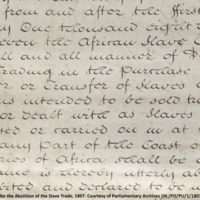 from and after the first
ay One thousand eight
even the African Slave
all and all manner of
Trading in the Purchase
r or Transfer of Slaves o
ns intended to be sold tr
or dealt with as Slaves
ised or carried on in at
any part of the Coast o
ries of Africa shall be
ame is hereby utterly ab
bited and declared to be u
for the Abolition of the Slave Trade, 1807. Courtesy of Parliamentary Archives (HL/PO/PU/1/180